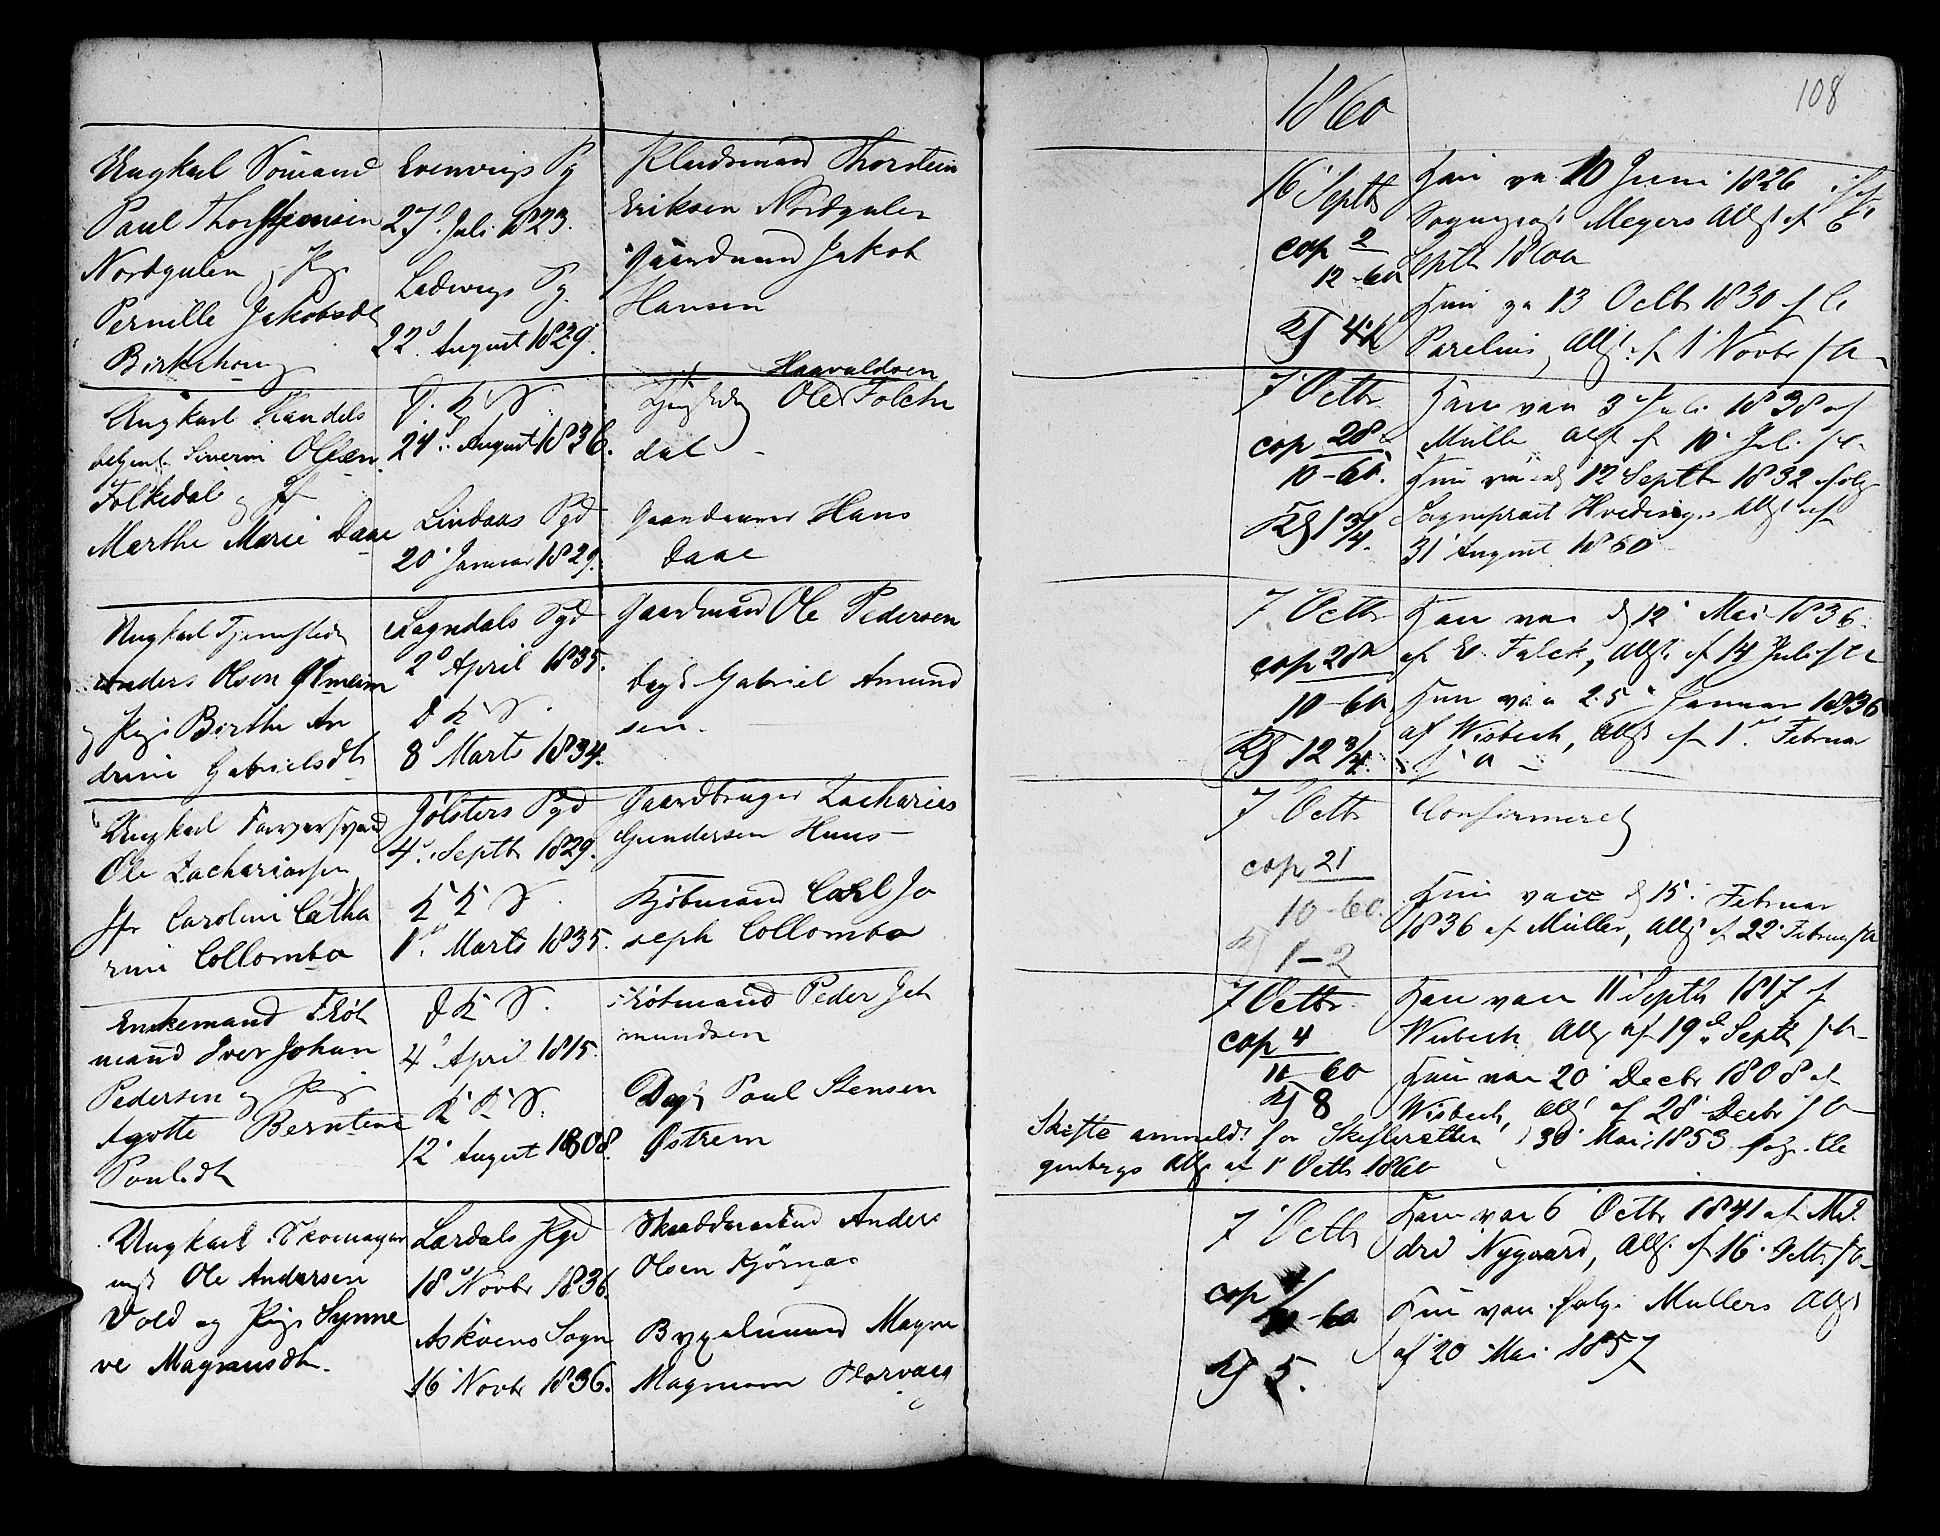 1860
108
Ungkarl Sömand
Paul Thorsteinsen
Nordgulen og Pig
Pernille Jakobsdt
Birkehoug
Evenvigs Pg
27d Juli 1823.
Ladevigs Pg
22d August 1829.
Pladsmand Thorstein
Eriksen Nordgulen
Gaardmand Jakob
Hansen
16 Septb
cop 2
12-60
Han va 10 Juni 1826
Sogneprest Meyers Attst af 6
Septb 1860
Hun va 13 Octb 1830 af C
Parelius, Attst af 1 Novbr s A
Ungkarl Handels
betjent Siverin Olsen
Folkedal og Jfr
Marthe Marie Daae
D. K. S.
24d August 1836.
Lindaas Pgd
20 Januar 1829.
Haavaldsen
Ole Folche
dal
Gaardmand Hans
Daae
7 Octbr
cop 28
10-60.
1 3/4.
Han vac 3 Juli 1838 af
Müller Attst af 10 Juli s A
Hun vac 12 Septbr 1832 følge
Sogneprest Hvedings Attst af
31 August 1860
Ungkarl Tjenestedr
Anders Olsen Ølmeim
og Pige Birthe An
drine Gabrielsdt
Sogndals Pgd
2d April 1835.
D K S.
8d Marts 1834.
Gaardmand Ole Pedersen
Dagk Gabriel Amund
sen.
7 Octbr
cop 28
10-60.
12 3/4.
Han vac d 12 Mai 1836.
af E. Falck, Attst af 14 Juli s A
Hun vac 25 Januar 1836
af Wisbech, Attst af 1d Februar
s A
Ungkarl Farversvend
Ole Zachariassen
Jfr Caroline Catha
rine Collomba
Jölsters Pgd
4d Septb 1829.
K K S.
1d Marts 1835.
Gaardbruger Zacharias
Gundersen Huus
Kjöbmand Carl Jo
seph Collomba
7 Octbr
cop 21
10-60.
1-2
Confirmeret
Hun vacc d 15 Februar
1836 af Müller, Attst af 22 Februar s A
Enkemand Fragt
mand Iver Johan
Pedersen og Pige
Agotte Berntine
Poulsdt
D K S.
4d April 1815.
K K S.
12 August 1808.
mand Peder Jet
mundsen
Dagk Poul Stensen
Östrem
7 Octbr.
cop 4
11-60
8
Han vac 11 Septb 1817 af
Wisbech Attst af 19d Septb s A
Hun vac 20 Decbr 1808 af
Wisbech, Attst af 28 Decbr s A
Skifte anmeldt for Skifteretten d 30 Mai 1853 følge Kle
genbergs Attst af 1 Octb 1860
Ungkarl Skomager
Ole Andersen
Vold og Pige Synne
ve Magnusdtr.
Lærdals Pgd
18d Novbr 1836.
Askøens Sogn
16 Novbr 1836.
Anders
Olsen Kjörnæs
Bygselmand Magne
Magnusen Florvaag
7 Octbr
cop 4
-60
5.
Han vac 6 Octbr 1841 af Mad.
dre Nygaard, Attst af 16 Octb s A
Hun vac følge Mullers Attst
af 20 Mai 1857